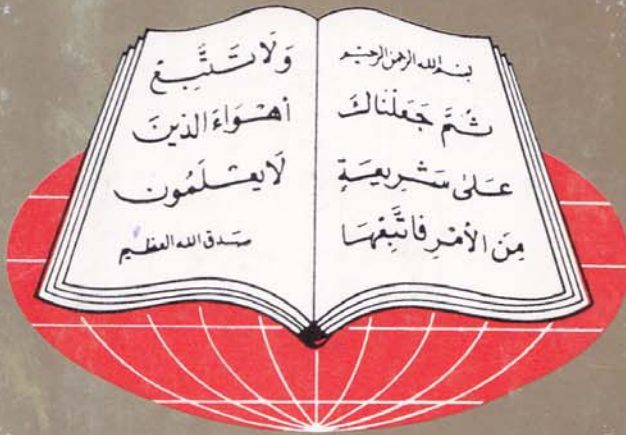 بسم الله الرحمن الرحيم
ثُمَّ جَعَلْنَاكَ
عَلىٰ شَرِيعَةٍ
مِنَ الأمْرِ فَاتَّبِعْهَا
وَلَا تَتَّبِعْ
أهْوَاءَ الذينَ
لَا يَعْلَمُون
صدق الله العظيم